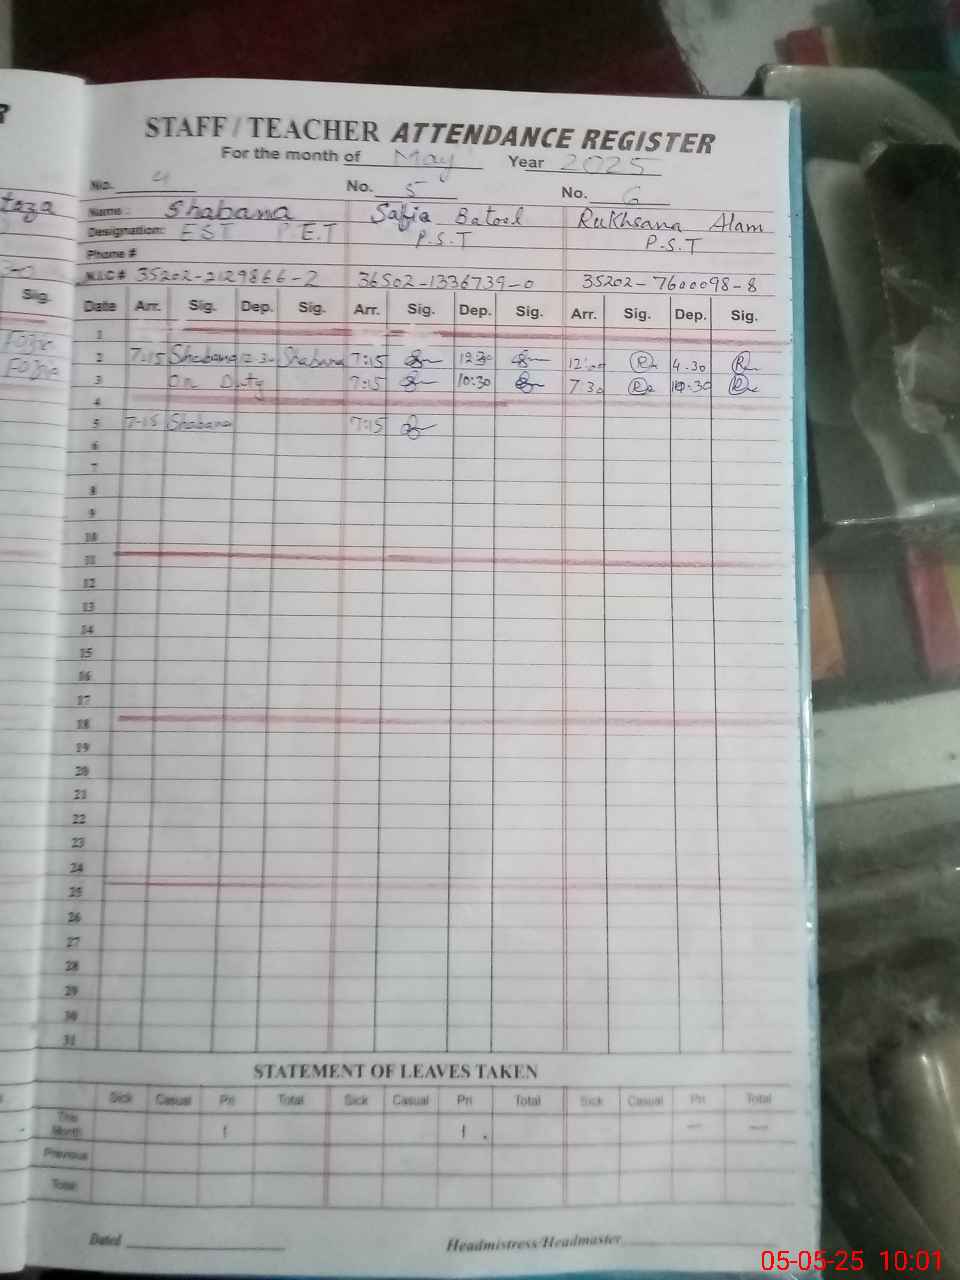 R
STAFF / TEACHER ATTENDANCE REGISTER
For the month of May Year 2025
No. 4 No. 5 No. 6
Name: Shabana Safia Batool Rukhsana Alam
Designation: EST P.E.T P.S.T P.S.T
Phone #
N.I.C # 35202-2129866-2 36502-1336739-0 35202-7600098-8
Sig.
Date Arr. Sig. Dep. Sig. Arr. Sig. Dep. Sig. Arr. Sig. Dep. Sig.
1
2 7:15 Shabana 12.30 Shabana 7:15 12:30 12:00 R 4.30 R
3 on Duty 7:15 10:30 7:30 R 10.30 R
4
5 7-15 Shabana 7:15
6
7
8
9
10
11
12
13
14
15
16
17
18
19
20
21
22
23
24
25
26
27
28
29
30
31
STATEMENT OF LEAVES TAKEN
Sick Casual Pri Total Sick Casual Pri Total Sick Casual Pri Total
This Month 1 1 . — —
Previous
Total
Dated Headmistress/Headmaster
05-05-25 10:01